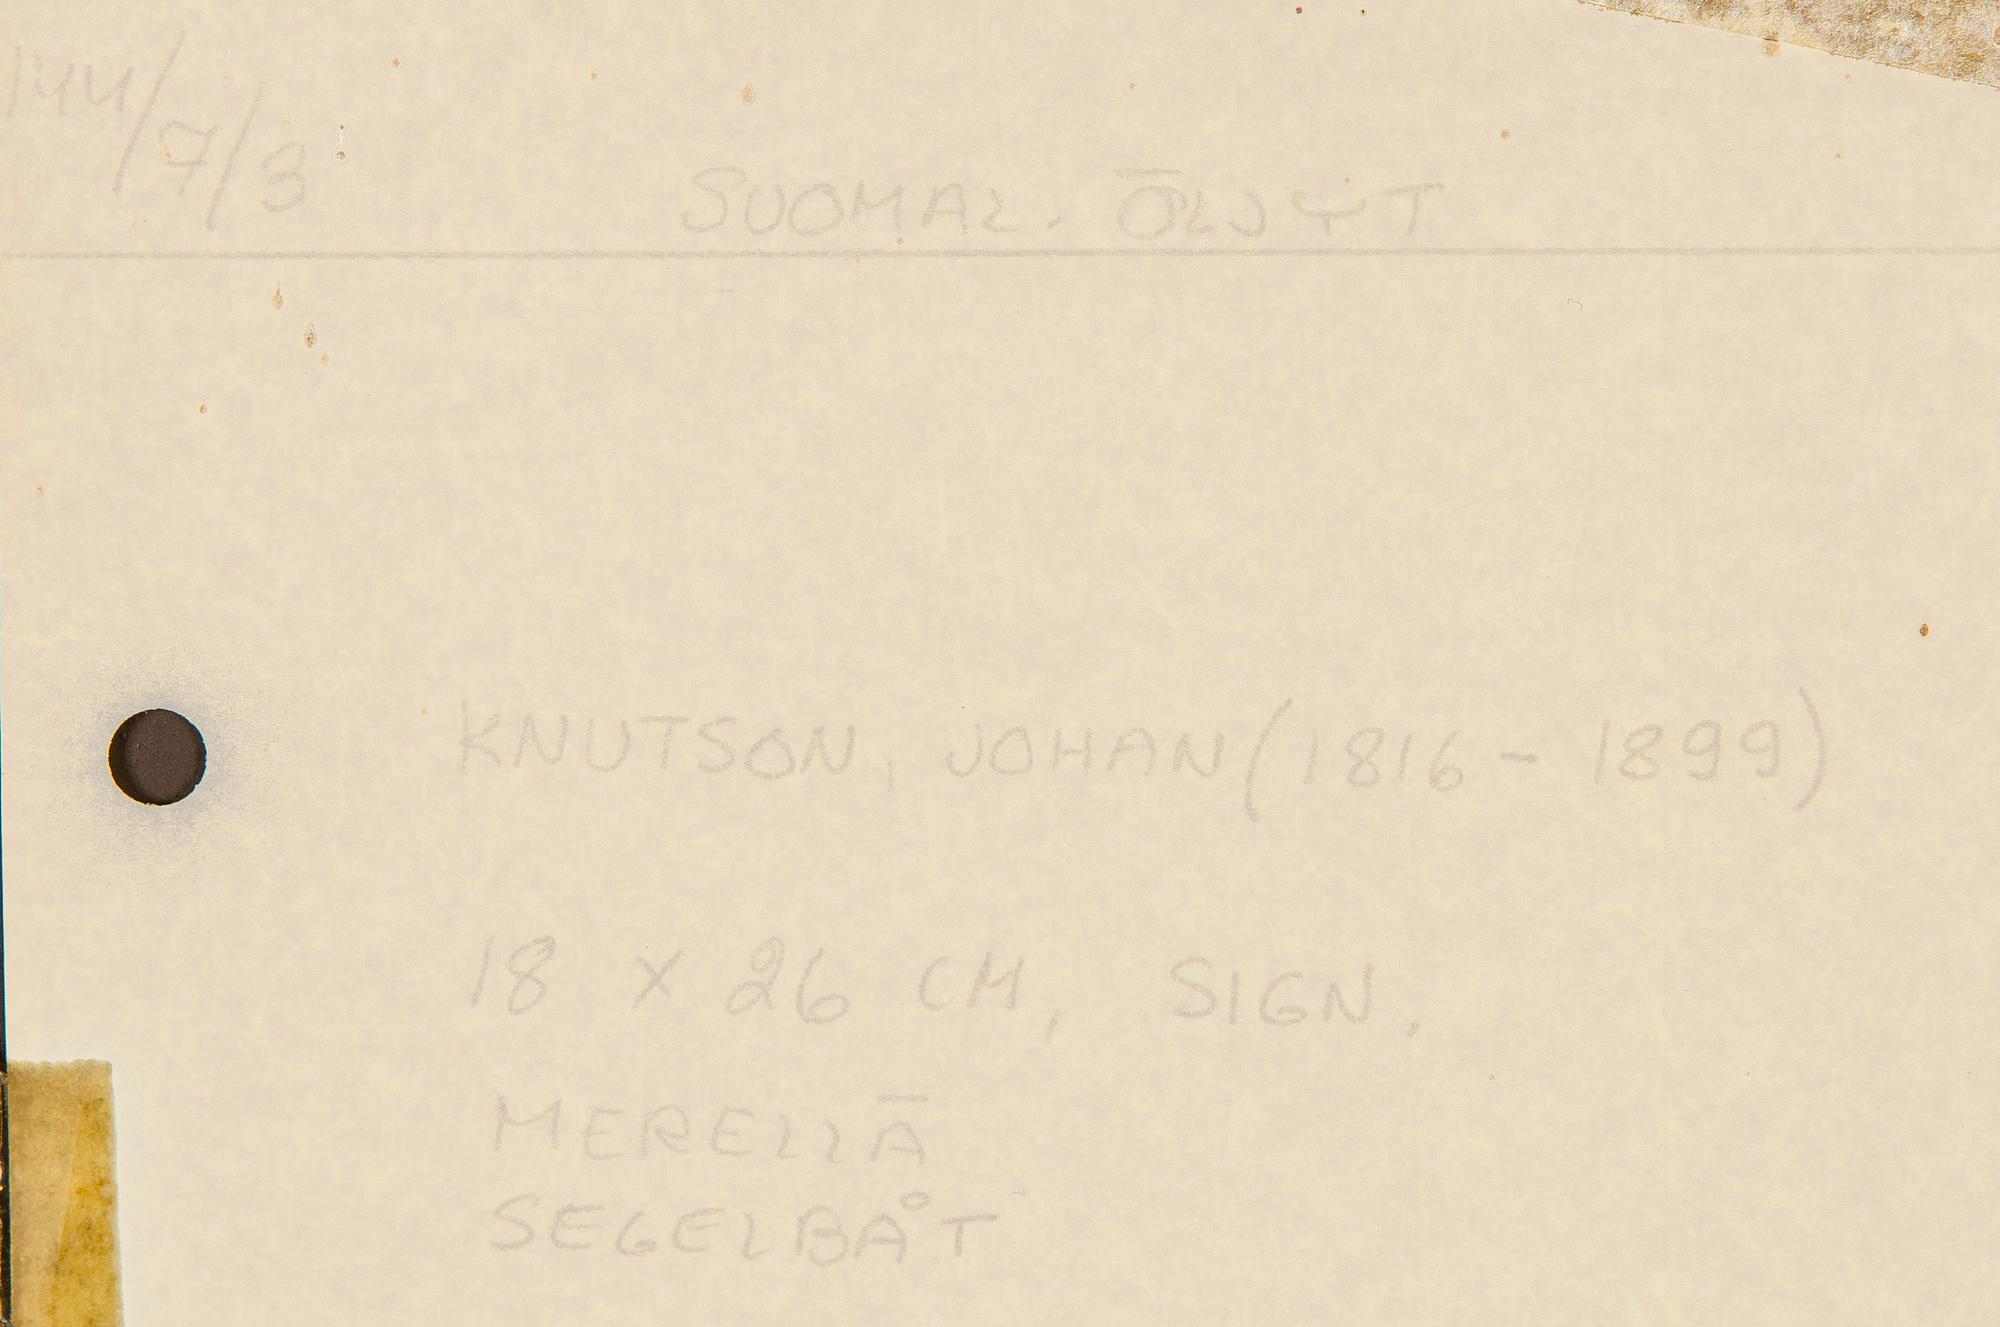 144/7/3
SUOMAL. ÖLJYT
KNUTSON, JOHAN (1816 - 1899)
18 x 26 CM, SIGN.
MERELLÄ
SEGELBÅT